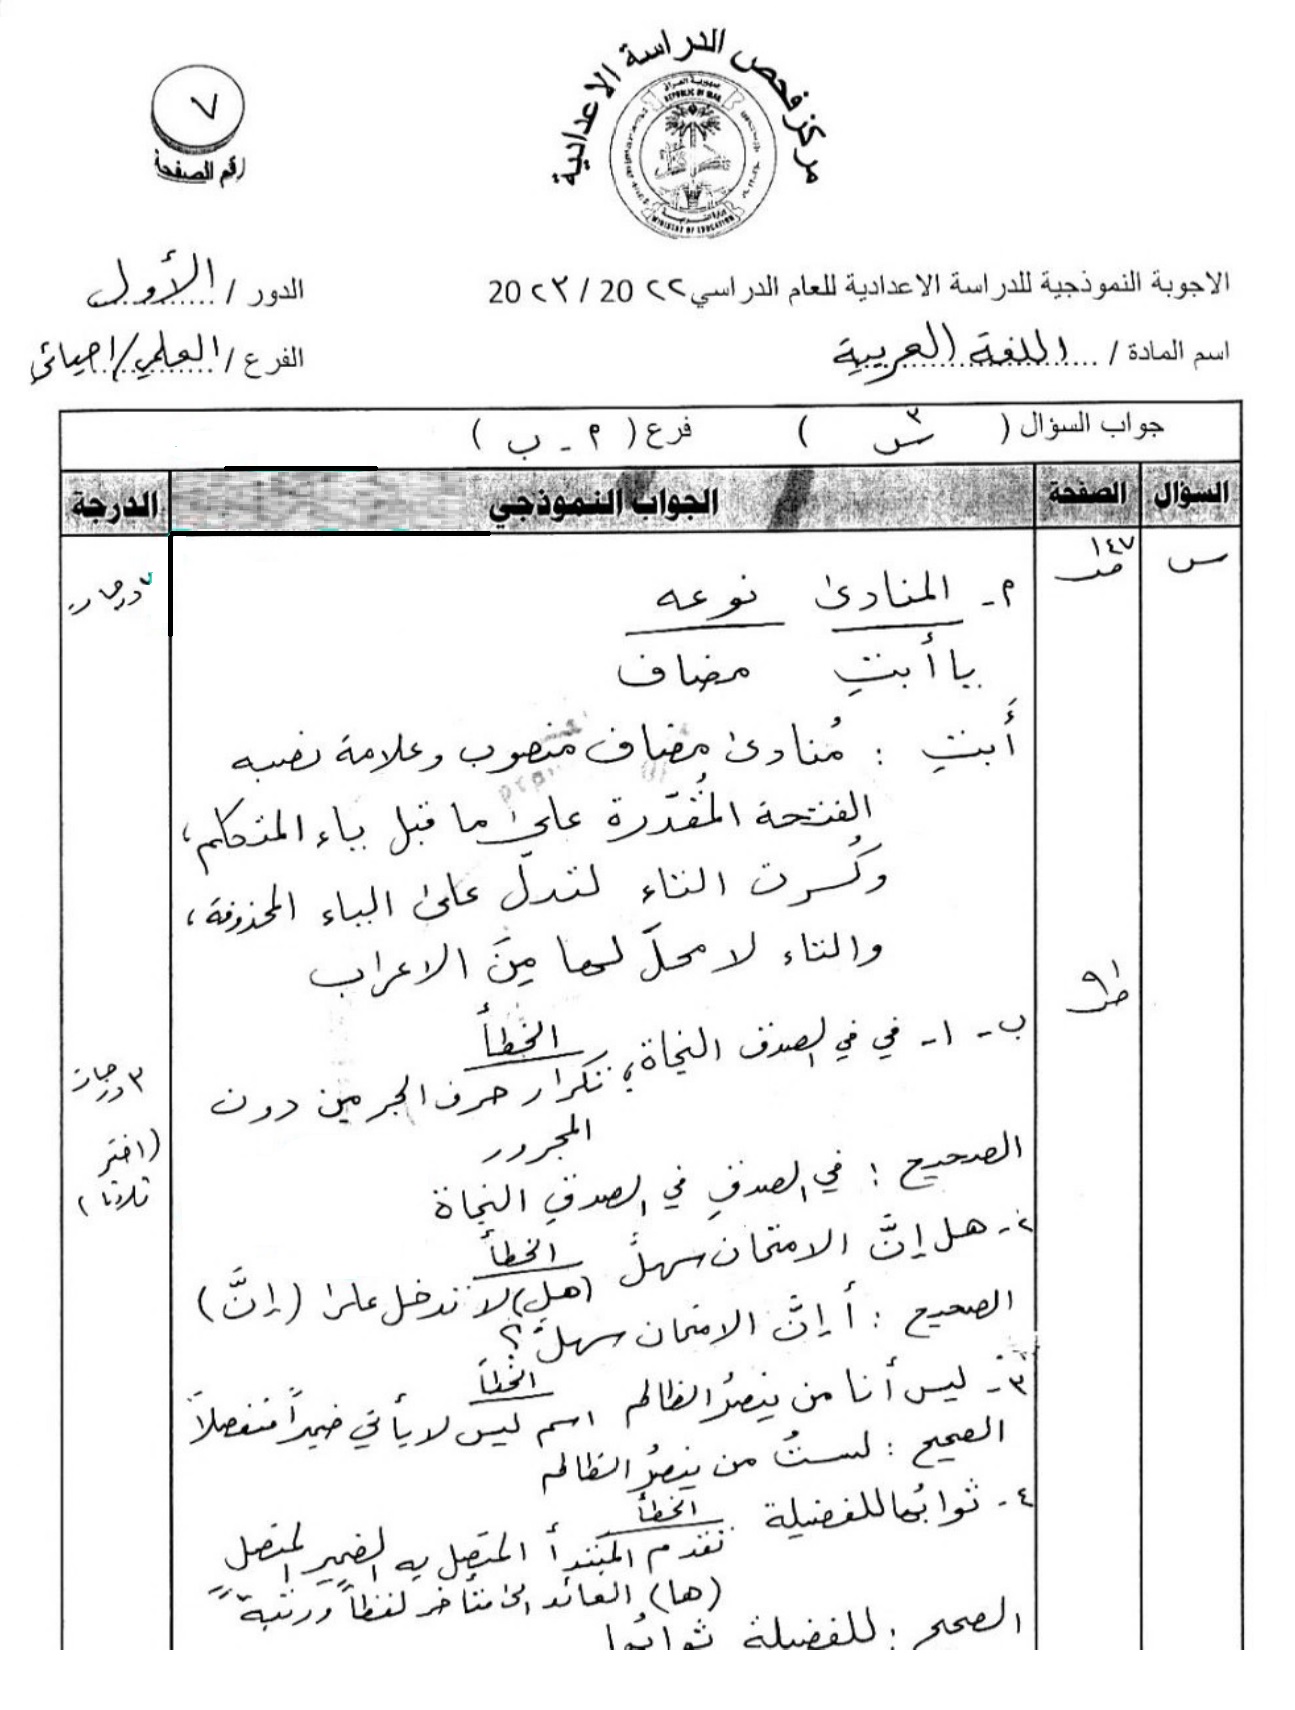 مركز فحص الدراسة الاعدادية
جمهورية العراق
REPUBLIC OF IRAQ
وزارة التربية
MINISTRY OF EDUCATION
٧
رقم الصفحة
الاجوبة النموذجية للدراسة الاعدادية للعام الدراسي ٢٢ 20 / ٢٣ 20
الدور / الأول
اسم المادة / اللغة العربية
الفرع / العلمي/احيائي
جواب السؤال ( س٣ ) فرع ( م - ب )
السؤال الصفحة الجواب النموذجي الدرجة
س ص١٤٧ م- المنادى نوعه ٧ درجات
يا أبتِ مضاف
أَبتِ : مُنادى مضاف منصوب وعلامة نصبه
الفتحة المُقدّرة على ما قبل ياء المتكلم،
وكُسرت التاء لتدلّ على الياء المحذوفة،
والتاء لا محلَّ لها مِنَ الاعراب
ص٩١
ب- ١- في في الصدق النجاة، الخطأ تكرار حرف الجر من دون
المجرور
٣ درجات
(اختر
ثلاثا)
الصحيح : في الصدقِ في الصدقِ النجاة
٢- هل إنَّ الامتحان سهلٌ الخطأ (هل) لا تدخل على (إنَّ)
الصحيح : أ إنَّ الامتحان سهلٌ؟
٣- ليس أنا من ينصرُ الظالم الخطأ اسم ليس لا يأتي ضميراً منفصلاً
الصحيح : لستُ من ينصرُ الظالم
٤- ثوابُها للفضيلة الخطأ تقدم المبتدأ المتصل به الضمير المتصل
(ها) العائد الى متأخر لفظاً ورتبة
الصحيح : للفضيلة ثوابُها